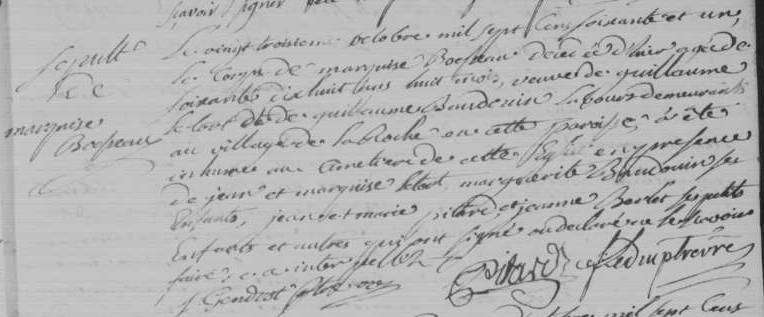 savoir signer
Sepult.
de
marquise
Bospeau
Le vingt troisieme octobre mil sept cens soixante et un,
Le Corps de marquise Bospeau décédée d'hier agée de
soixante dix huit ans huit mois, veuve de guillaume
de guillaume Baudouin Labour. demeurants
au village de la Roche en cette paroisse, a été
inhumée au Cimetiere de cette Eglise en presence
de jean et marquise margueritte Baudouin ses
Enfants, jean et marie pitard, et jeanne Berlet ses petits
Enfants et autres qui ont signé ou declaré ne le savoir
faire, de ce interpellez
Pitard
J. Gendrot
mil sept Cens